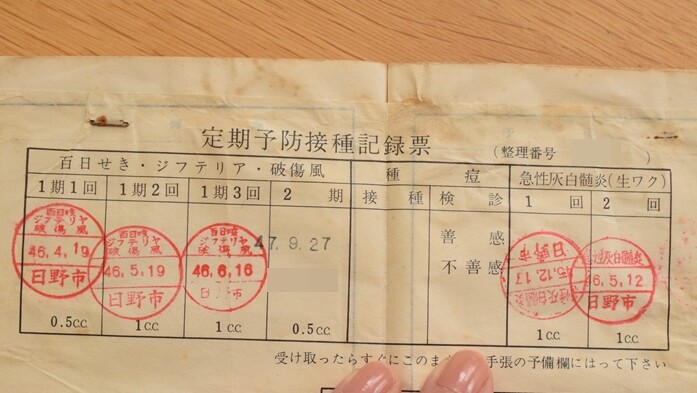 定期予防接種記録票
(整理番号 )
百日せき・ジフテリア・破傷風 種痘 急性灰白髄炎(生ワク)
1期1回 1期2回 1期3回 2期 接種 検診 1回 2回
百日咳 ジフテリヤ 破傷風 46.4.19 日野市
百日咳 ジフテリヤ 破傷風 46.5.19 日野市
百日咳 ジフテリヤ 破傷風 46.6.16 日
47.9.27
善感
不善感
日野市 45.12.17 急性灰白髄炎
急性灰白髄炎 46.5.12 日野市
0.5cc 1cc 1cc 0.5cc 1cc 1cc
受け取ったらすぐにこのまま 手張の予備欄にはって下さい